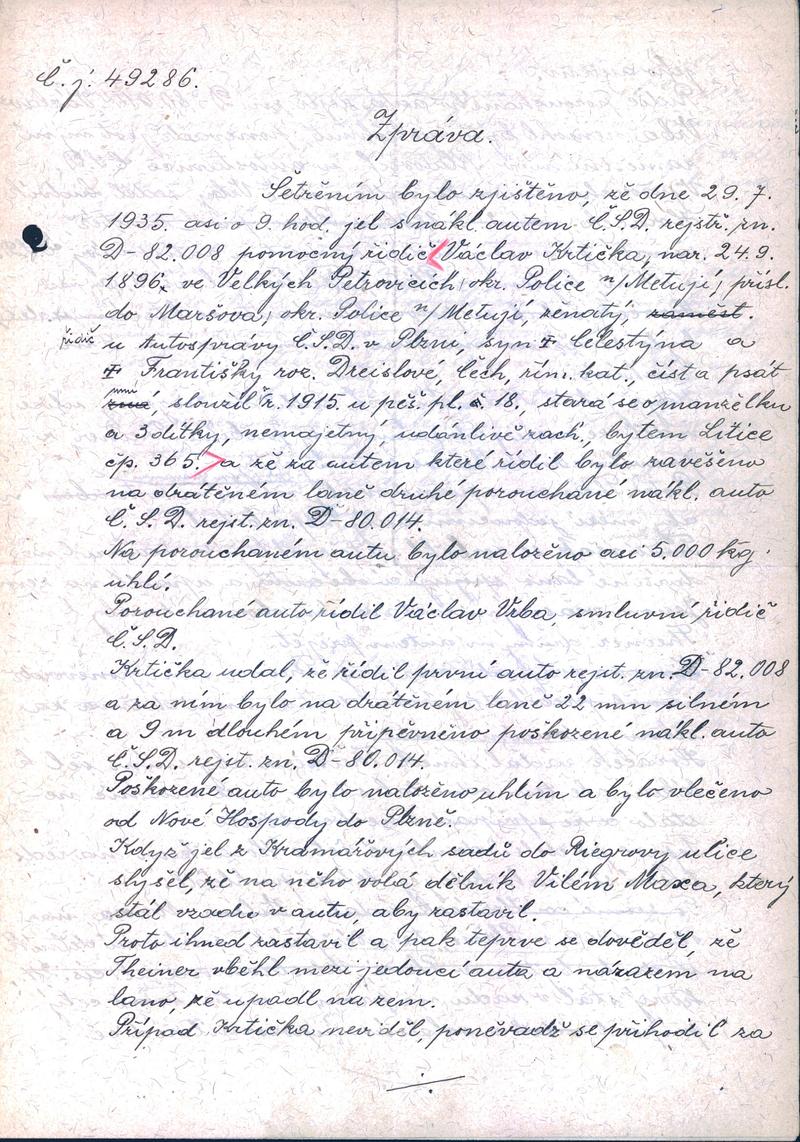 Č. j. 49286.
Zpráva.
Šetřením bylo zjištěno, že dne 29. 7.
1935 asi o 9. hod. jel s nákl. autem Č.S.D. rejstř. zn.
D-82.008 pomocný řidič Václav Krtička, nar. 24.9.
1896, ve Velkých Petrovicích, okr. Police n/Metují, přísl.
do Maršova, okr. Police n/Metují, ženatý, zaměst.
řidič u Autosprávy Č.S.D. v Plzni, syn † Celestýna a
† Františky roz. Dreislové, Čech, řím. kat., číst a psát
umí, sloužil r. 1915. u pěš. pl. č. 18., stará se o manželku
a 3 dítky, nemajetný, udánlivě zach., bytem Litice
čp. 365. a že za autem které řídil bylo zavěšeno
na drátěném laně druhé porouchané nákl. auto
Č.S.D. rejst. zn. D-80.014.
Na porouchaném autu bylo naloženo asi 5.000 kg.
uhlí.
Porouchané auto řídil Václav Vrba, smluvní řidič
Č.S.D.
Krtička udal, že řídil první auto rejst. zn. D-82.008
a za ním bylo na drátěném laně 22 mm silném
a 9 m dlouhém připěvněno poškozené nákl. auto
Č.S.D. rejst. zn. D-80.014.
Poškozené auto bylo naloženo uhlím a bylo vlečeno
od Nové Hospody do Plzně.
Když jel z Kramářových sadů do Riegrovy ulice
slyšel, že na něho volá dělník Vilém Maxa, který
stál vzadu v autu, aby zastavil.
Proto ihned zastavil a pak teprve se dověděl, že
Theiner vběhl mezi jedoucí auta a nárazem na
lano, že upadl na zem.
Případ Krtička neviděl, poněvadž se přihodil za